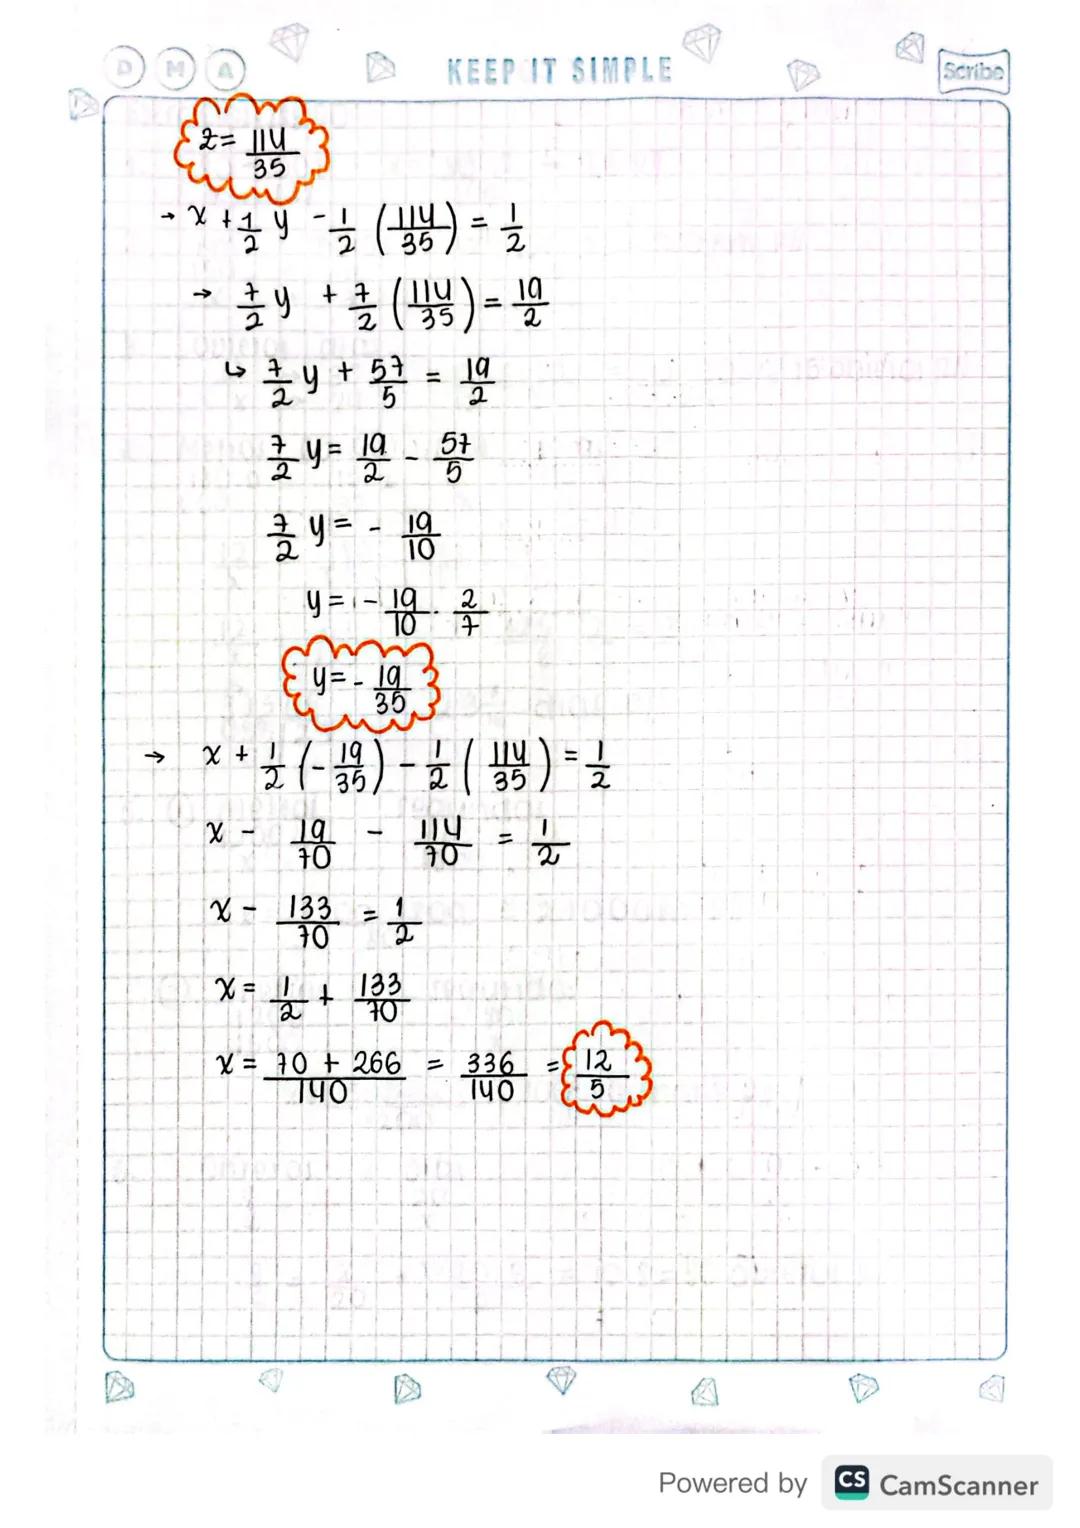 D M A KEEP IT SIMPLE Scribe
z = 114/35
→ x + 1/2 y - 1/2 (114/35) = 1/2
→ 7/2 y + 7/2 (114/35) = 19/2
↳ 7/2 y + 57/5 = 19/2
7/2 y = 19/2 - 57/5
7/2 y = - 19/10
y = - 19/10 · 2/7
y = - 19/35
→ x + 1/2 (- 19/35) - 1/2 (114/35) = 1/2
x - 19/70 - 114/70 = 1/2
x - 133/70 = 1/2
x = 1/2 + 133/70
x = 70 + 266/140 = 336/140 = 12/5
Powered by CS CamScanner